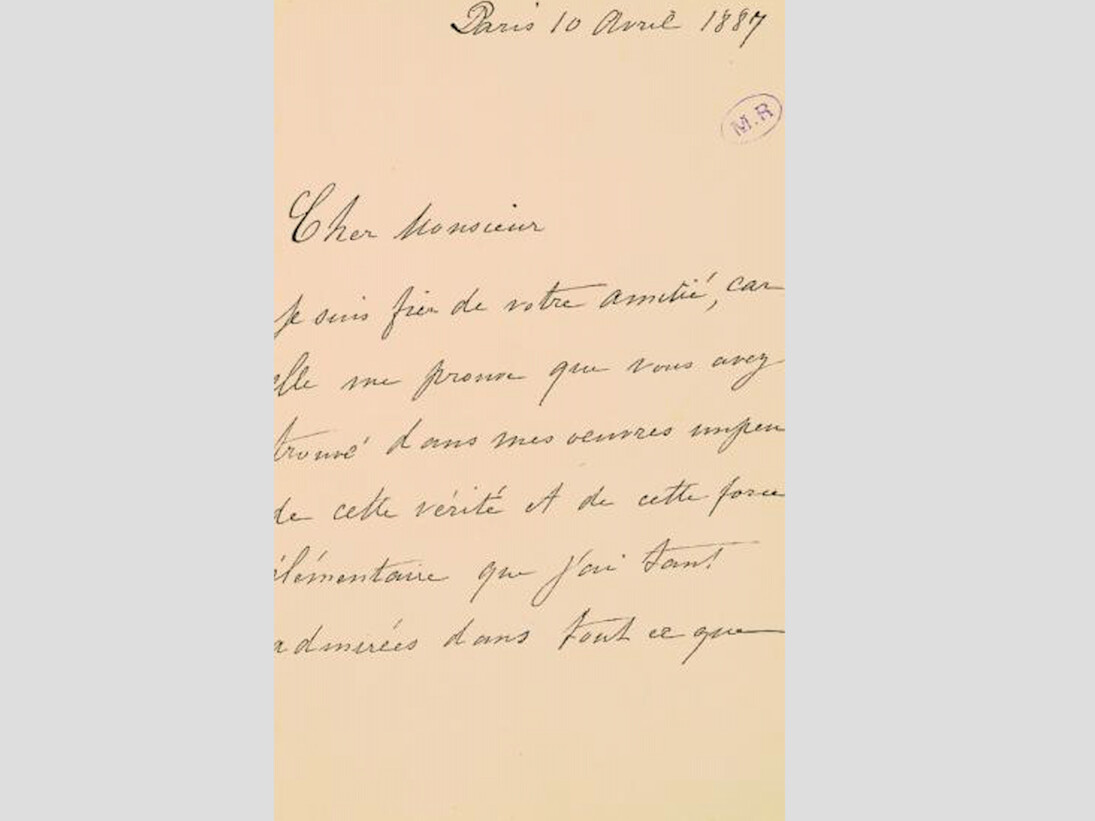 Paris 10 Avril 1887
M.R
Cher Monsieur
Je suis fier de votre amitié, car
elle me prouve que vous avez
trouvé dans mes oeuvres un peu
de cette vérité et de cette force
élémentaire que j'ai tant
admirées dans tout ce que